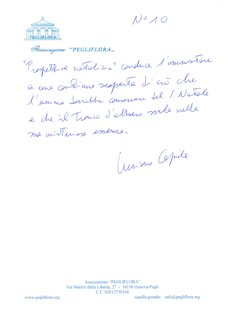 N° 10
PEGLIFLORA
Associazione "PEGLIFLORA"
"Prospettiva natalizia" conduce l'osservatore
a una continua scoperta di ciò che
l'animo dovrebbe conservare del S. Natale
e che il tronco d'albero svela nella
sua misteriosa essenza.
Luciano
Associazione "PEGLIFLORA"
Via Martiri della Libertà, 27 - 16156 Genova-Pegli
C.F. 92012730104
www.pegliflora.org casella postale: info@pegliflora.org